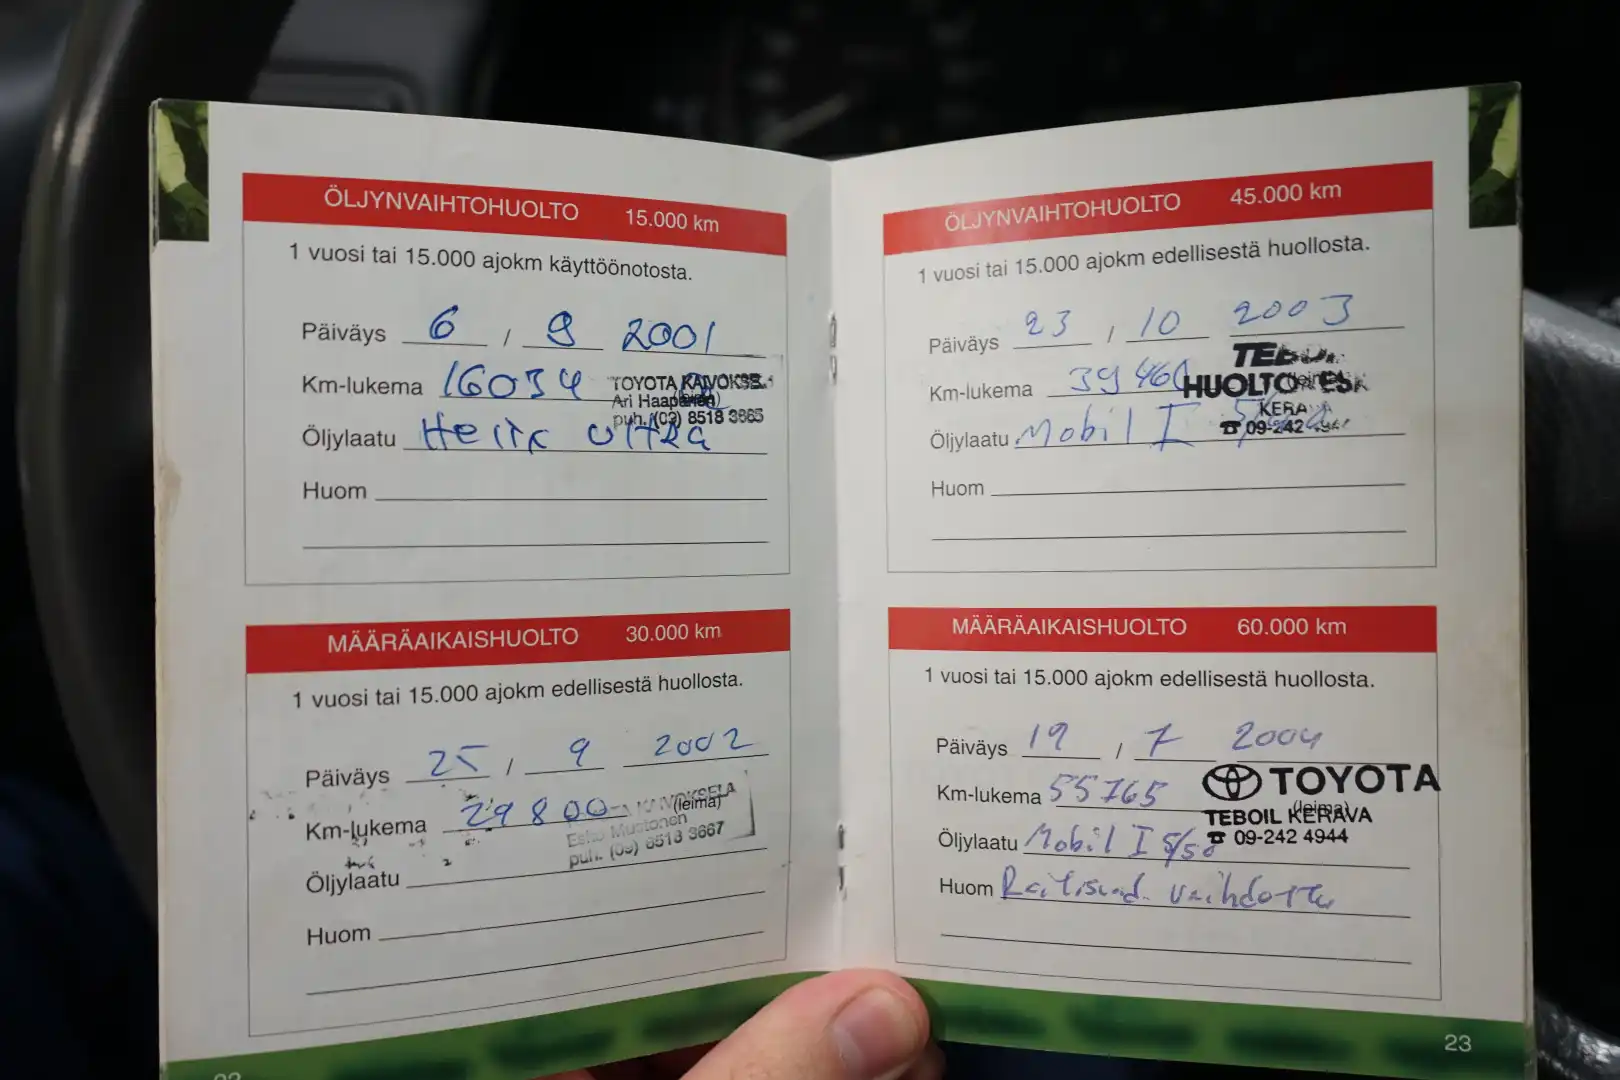 ÖLJYNVAIHTOHUOLTO 15.000 km
1 vuosi tai 15.000 ajokm käyttöönotosta.
Päiväys 6 / 9 2001
Km-lukema 16034
TOYOTA KAIVOKSE
(leima)
Ari Haapanen
puh. (09) 8518 3665
Öljylaatu Helix Ultra
Huom
MÄÄRÄAIKAISHUOLTO 30.000 km
1 vuosi tai 15.000 ajokm edellisestä huollosta.
Päiväys 25 / 9 2002
Km-lukema 29800
KAIVOKSELA
(leima)
Esko Mustonen
puh. (09) 8518 3667
Öljylaatu
Huom
ÖLJYNVAIHTOHUOLTO 45.000 km
1 vuosi tai 15.000 ajokm edellisestä huollosta.
Päiväys 23 / 10 2003
Km-lukema 39460
HUOLTO
(leima)
KERAVA
☎ 09-242
Öljylaatu Mobil I
Huom
MÄÄRÄAIKAISHUOLTO 60.000 km
1 vuosi tai 15.000 ajokm edellisestä huollosta.
Päiväys 19 / 7 2004
Km-lukema 55765
TOYOTA
(leima)
TEBOIL KERAVA
☎ 09-242 4944
Öljylaatu Mobil I 5/50
Huom Raitisuod. vaihdettu
23